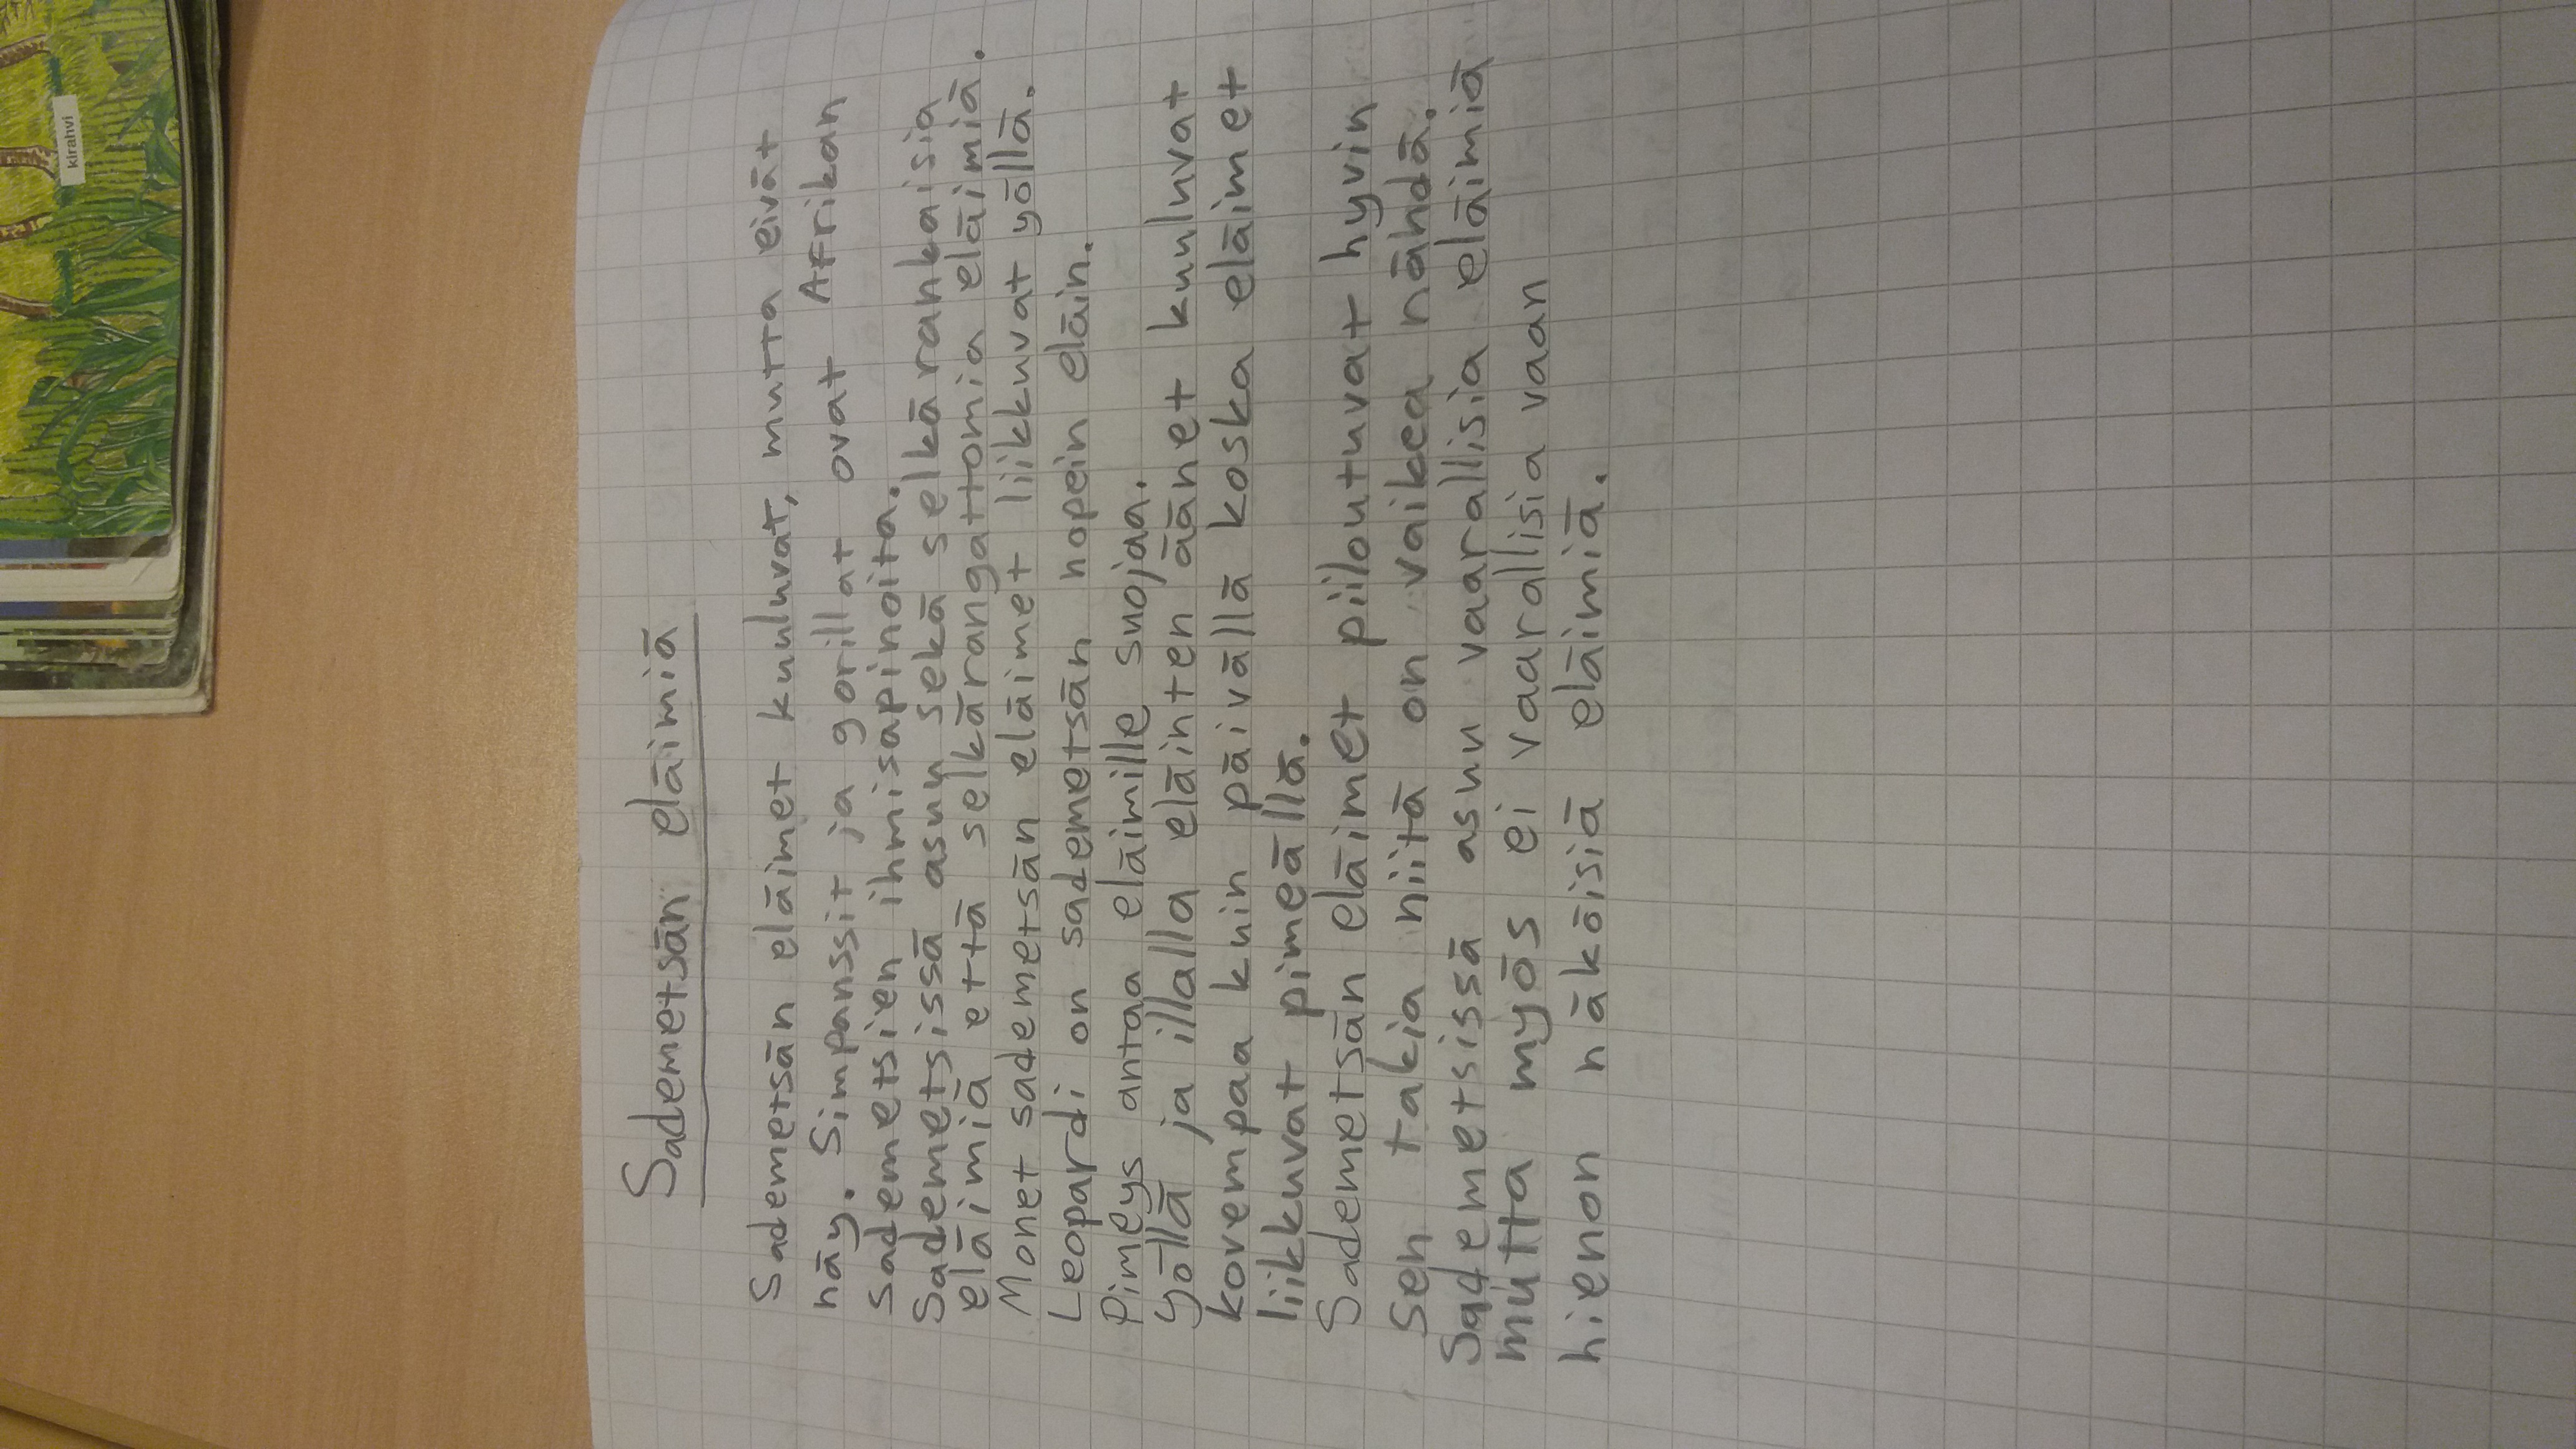 Sademetsän eläimiä
Sademetsän eläimet kuuluvat, mutta eivät
näy. Simpanssit ja gorillat ovat Afrikan
sademetsien ihmisapinoita.
Sademetsissä asuu sekä selkärankaisia
eläimiä että selkärangattomia eläimiä.
Monet sademetsän eläimet liikkuvat yöllä.
Leopardi on sademetsän nopein eläin.
Pimeys antaa eläimille suojaa.
Yöllä ja illalla eläinten äänet kuuluvat
kovempaa kuin päivällä koska eläimet
liikkuvat pimeällä.
Sademetsän eläimet piiloutuvat hyvin
Sen takia niitä on vaikea nähdä.
Sademetsissä asuu vaarallisia eläimiä
mutta myös ei vaarallisia vaan
hienon näköisiä eläimiä.
kirahvi